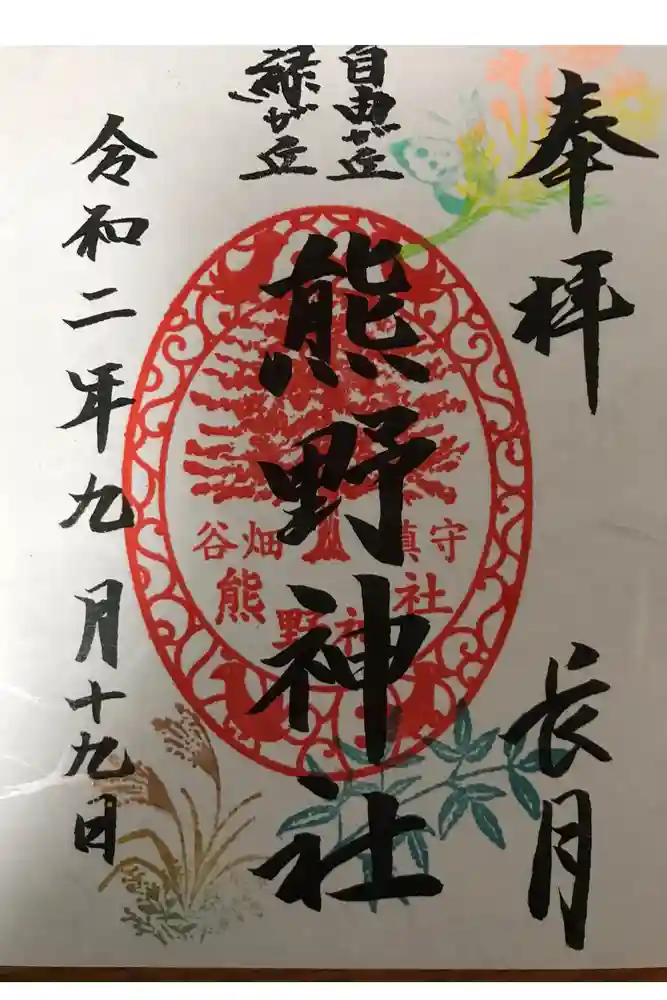 奉拝
長月
自由が丘
緑が丘
熊野神社
谷畑 鎮守
熊野神社
令和二年九月十九日